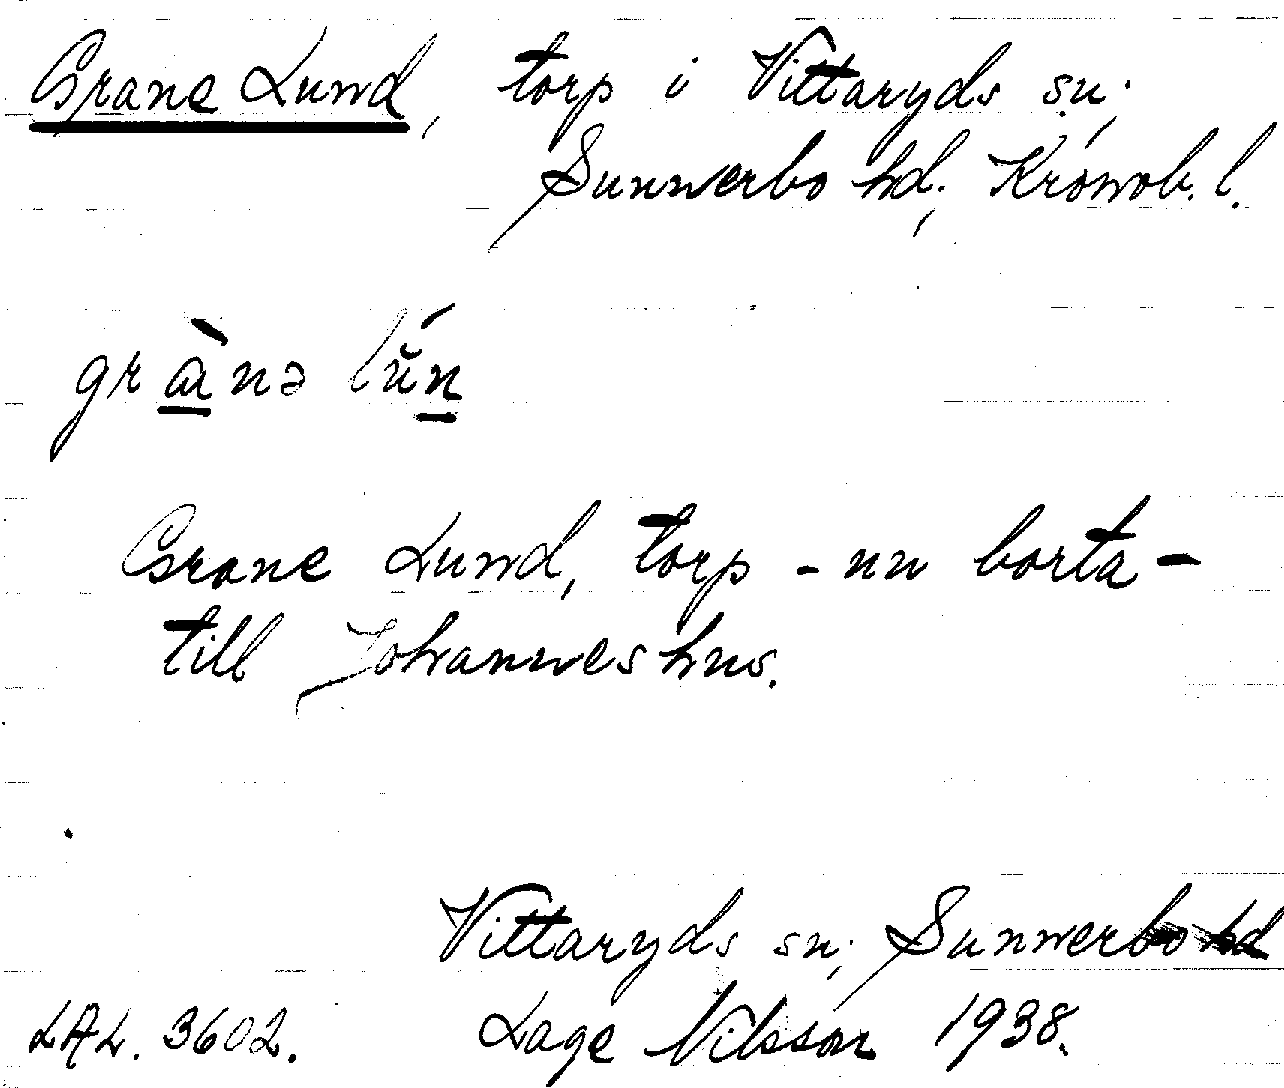 Grane Lund, torp i Vittaryds sn;
Sunnerbo hd; Kronob. l.
grànə lŭ́n
Grane Lund, torp - nu borta -
till Johanneshus.
Vittaryds sn; Sunnerbo hd
LAL. 3602. Lage Nilsson 1938.